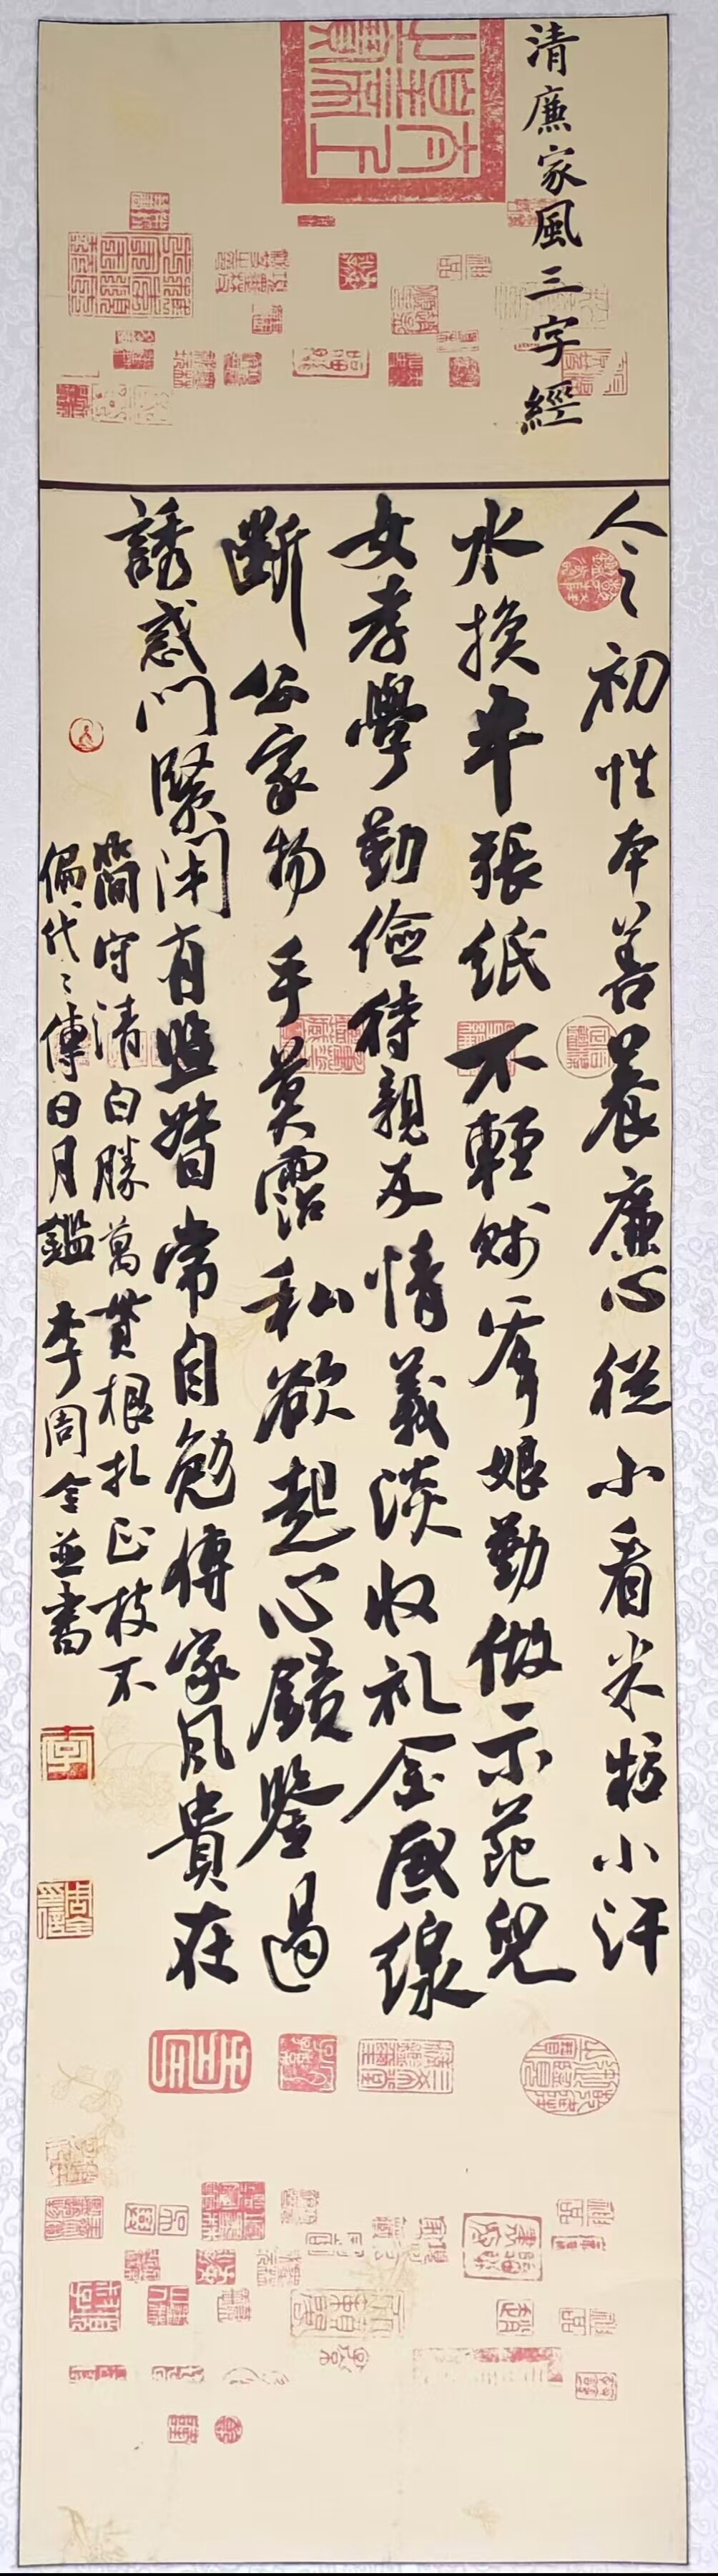 清廉家風三字經
人之初性本善養廉心從小看米粒小汗
水换半張紙不輕賤爹娘勤做示范兒
女孝學勤儉待親友情義淡收礼金底線
斷公家物手莫露私欲起心鏡鑒遇
誘惑門緊闭有监督常自勉傳家风貴在
簡守清白勝萬貫根扎正枝不
偏代々傳日月鑑 李周全並書